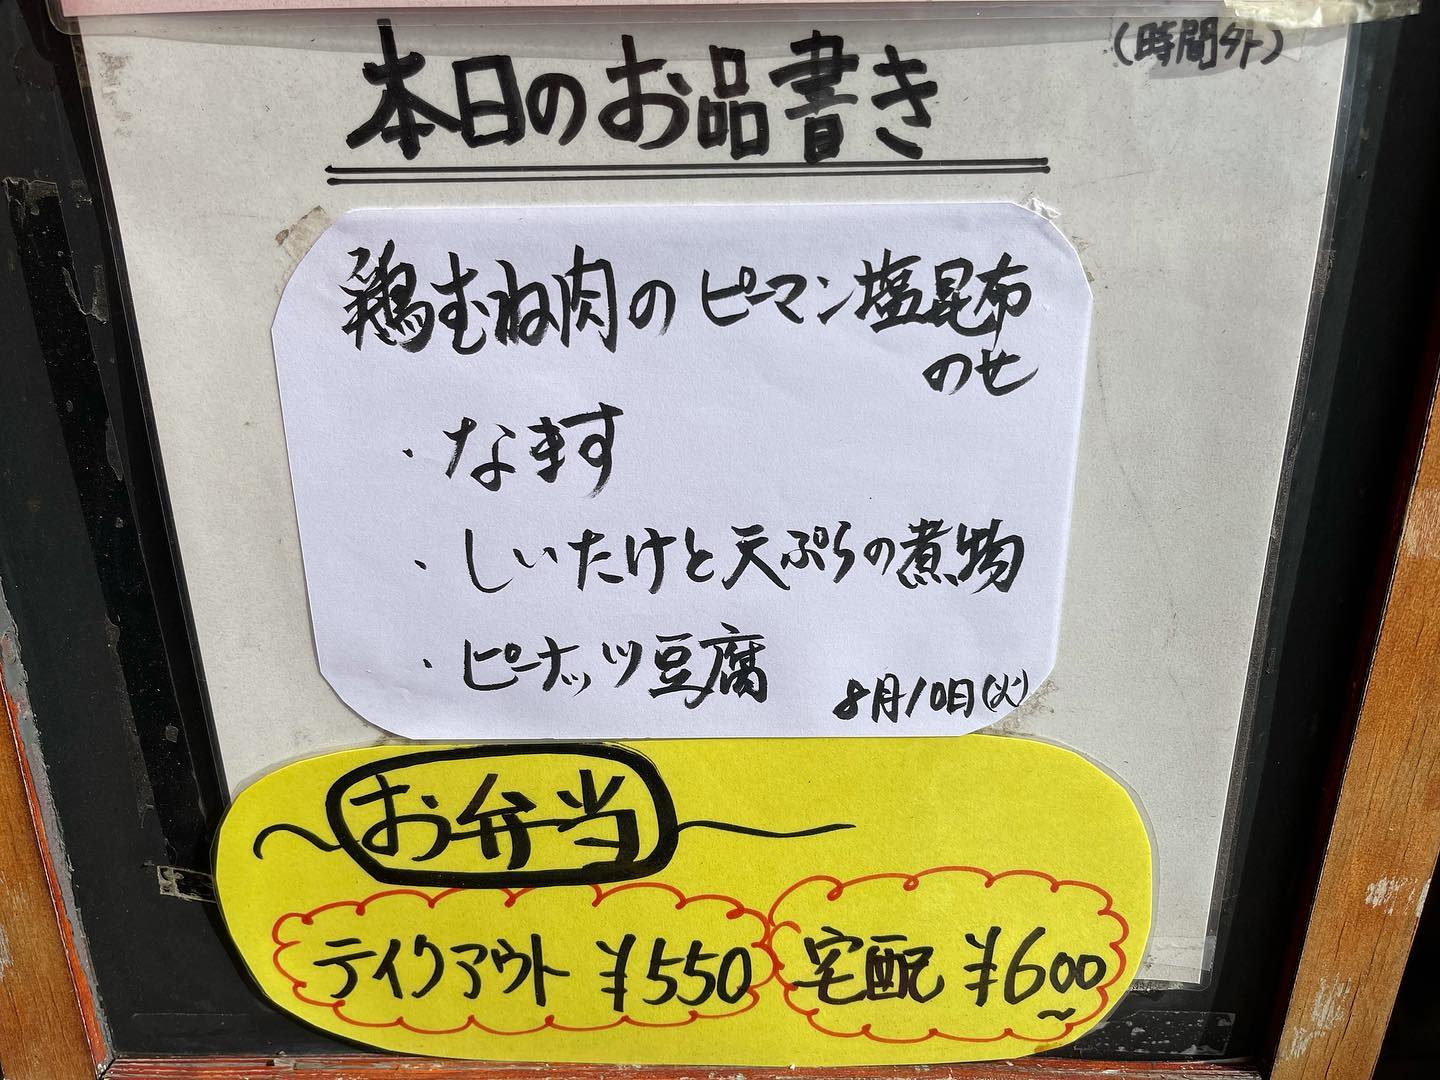 (時間外)
本日のお品書き
鶏むね肉のピーマン塩昆布
のせ
・なます
・しいたけと天ぷらの煮物
・ピーナッツ豆腐
8月10日(火)
お弁当
テイクアウト ¥550
宅配 ¥600~